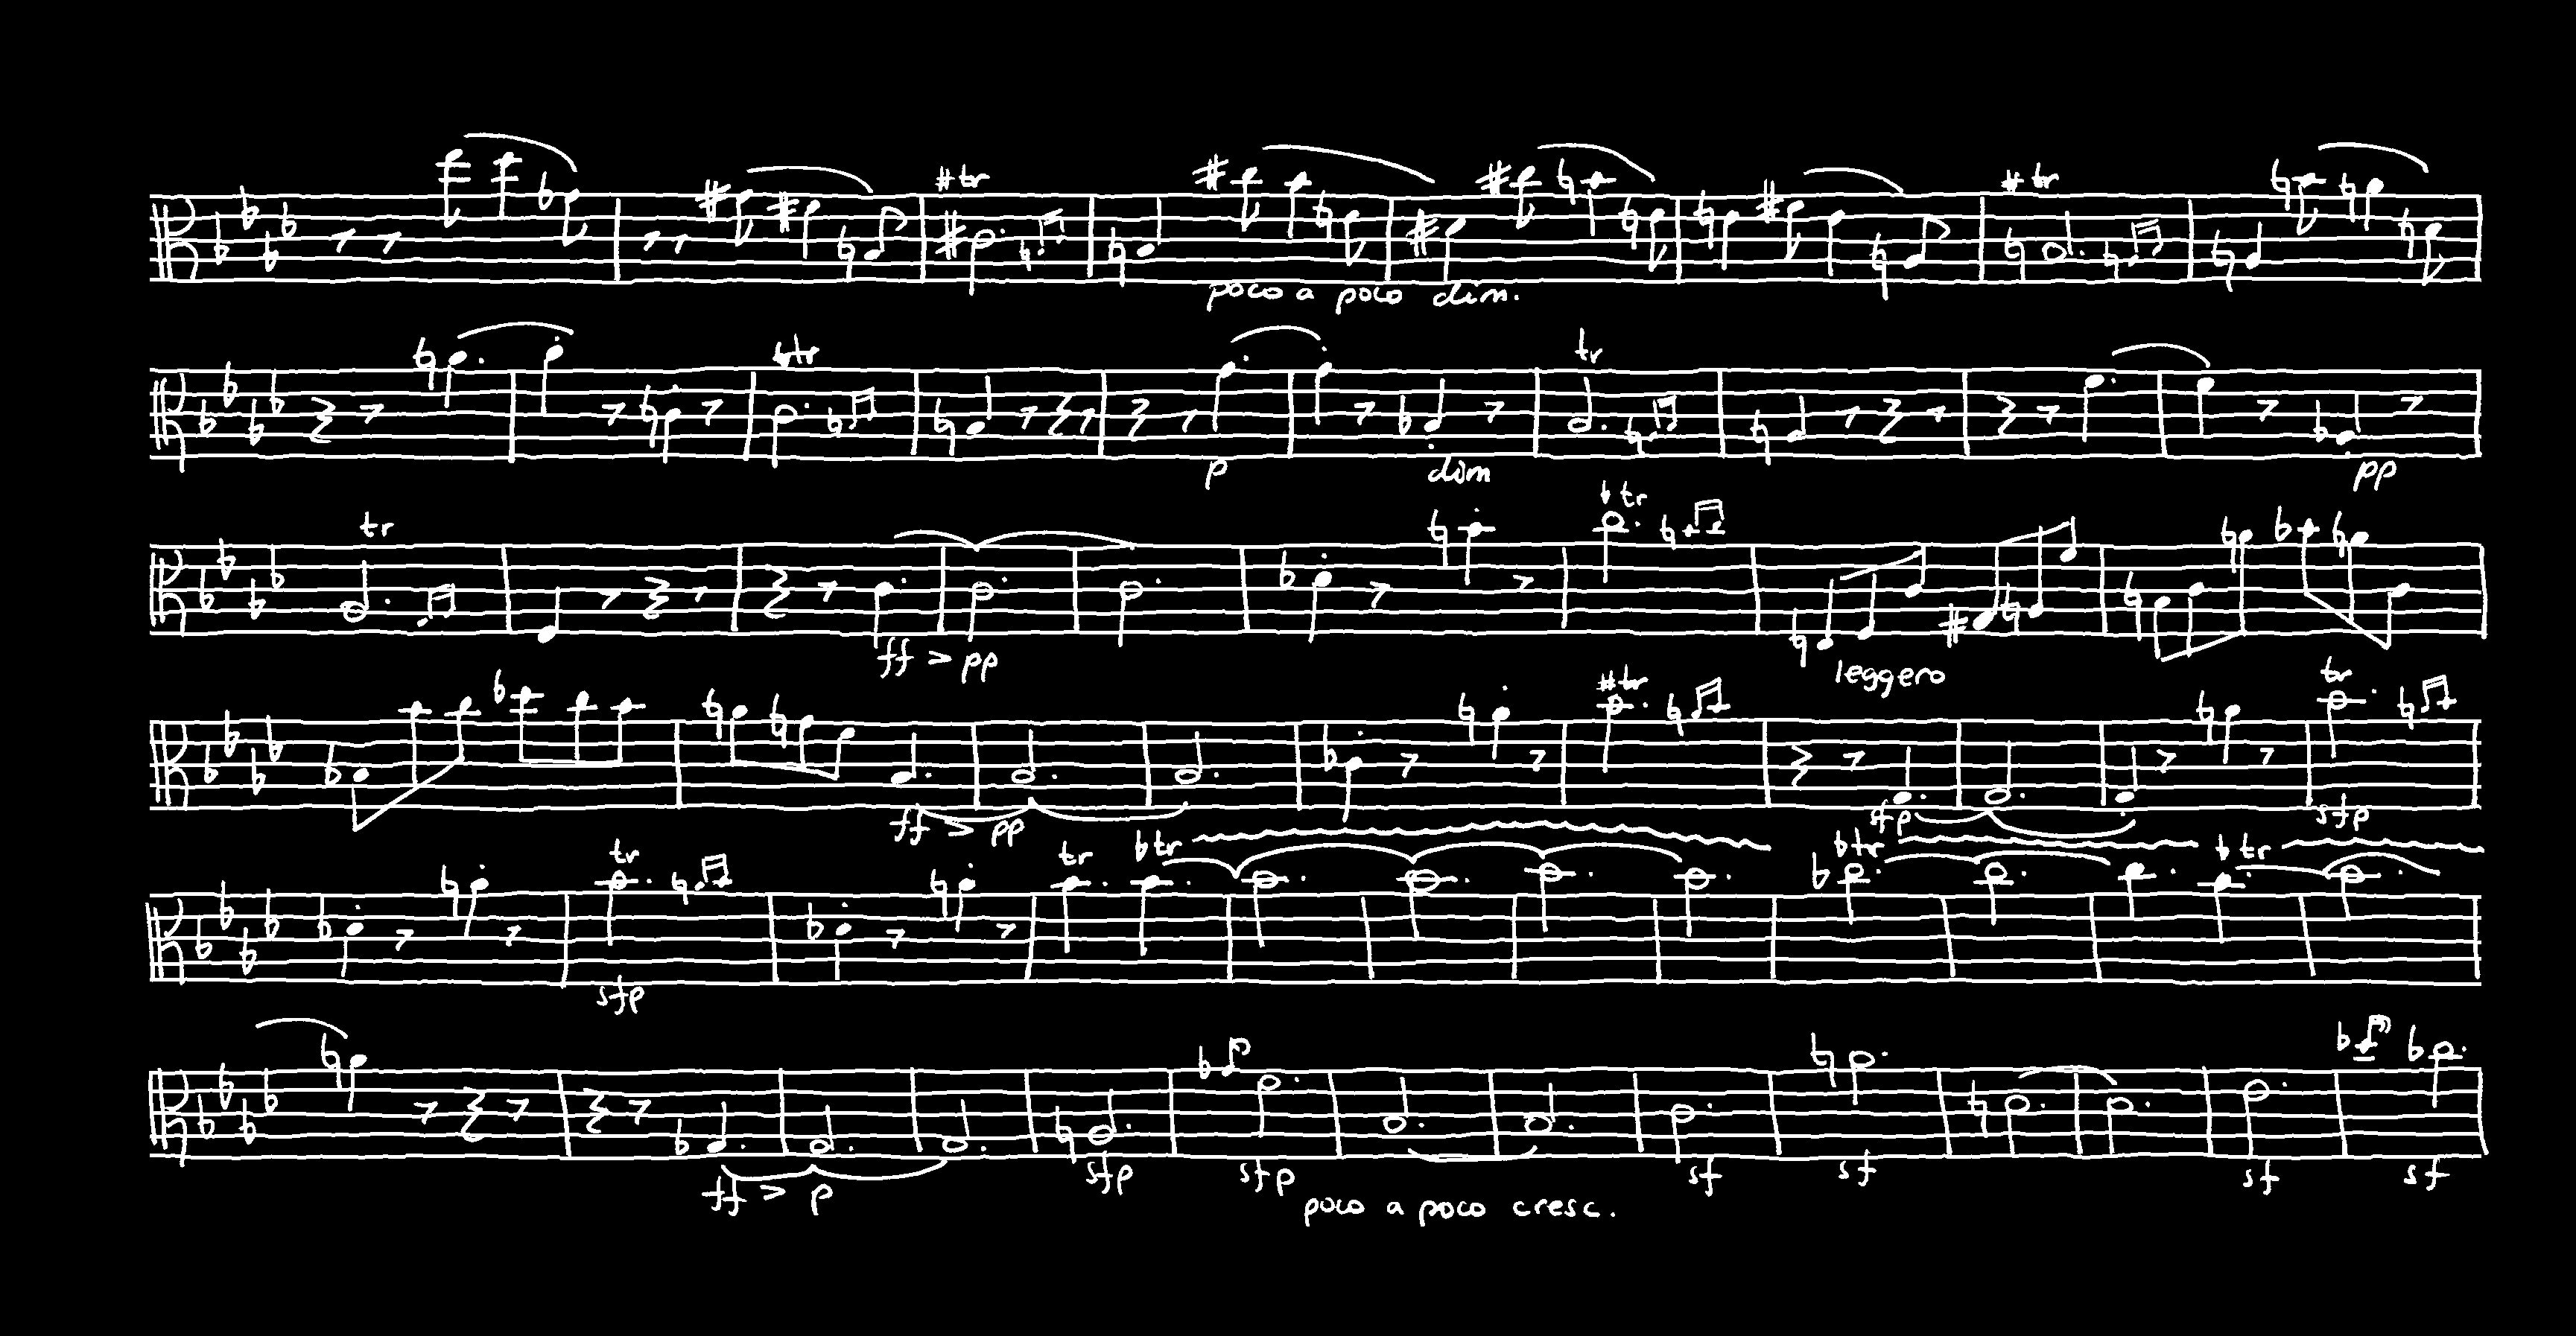 #tr #tr
poco a poco dim.
♮tr tr
p dim pp
tr ♭tr
ff > pp leggero
#tr tr
ff > pp sfp sfp
tr tr ♭tr ♭tr ♭tr
sfp
ff > p sfp sfp sf sf sf sf
poco a poco cresc.